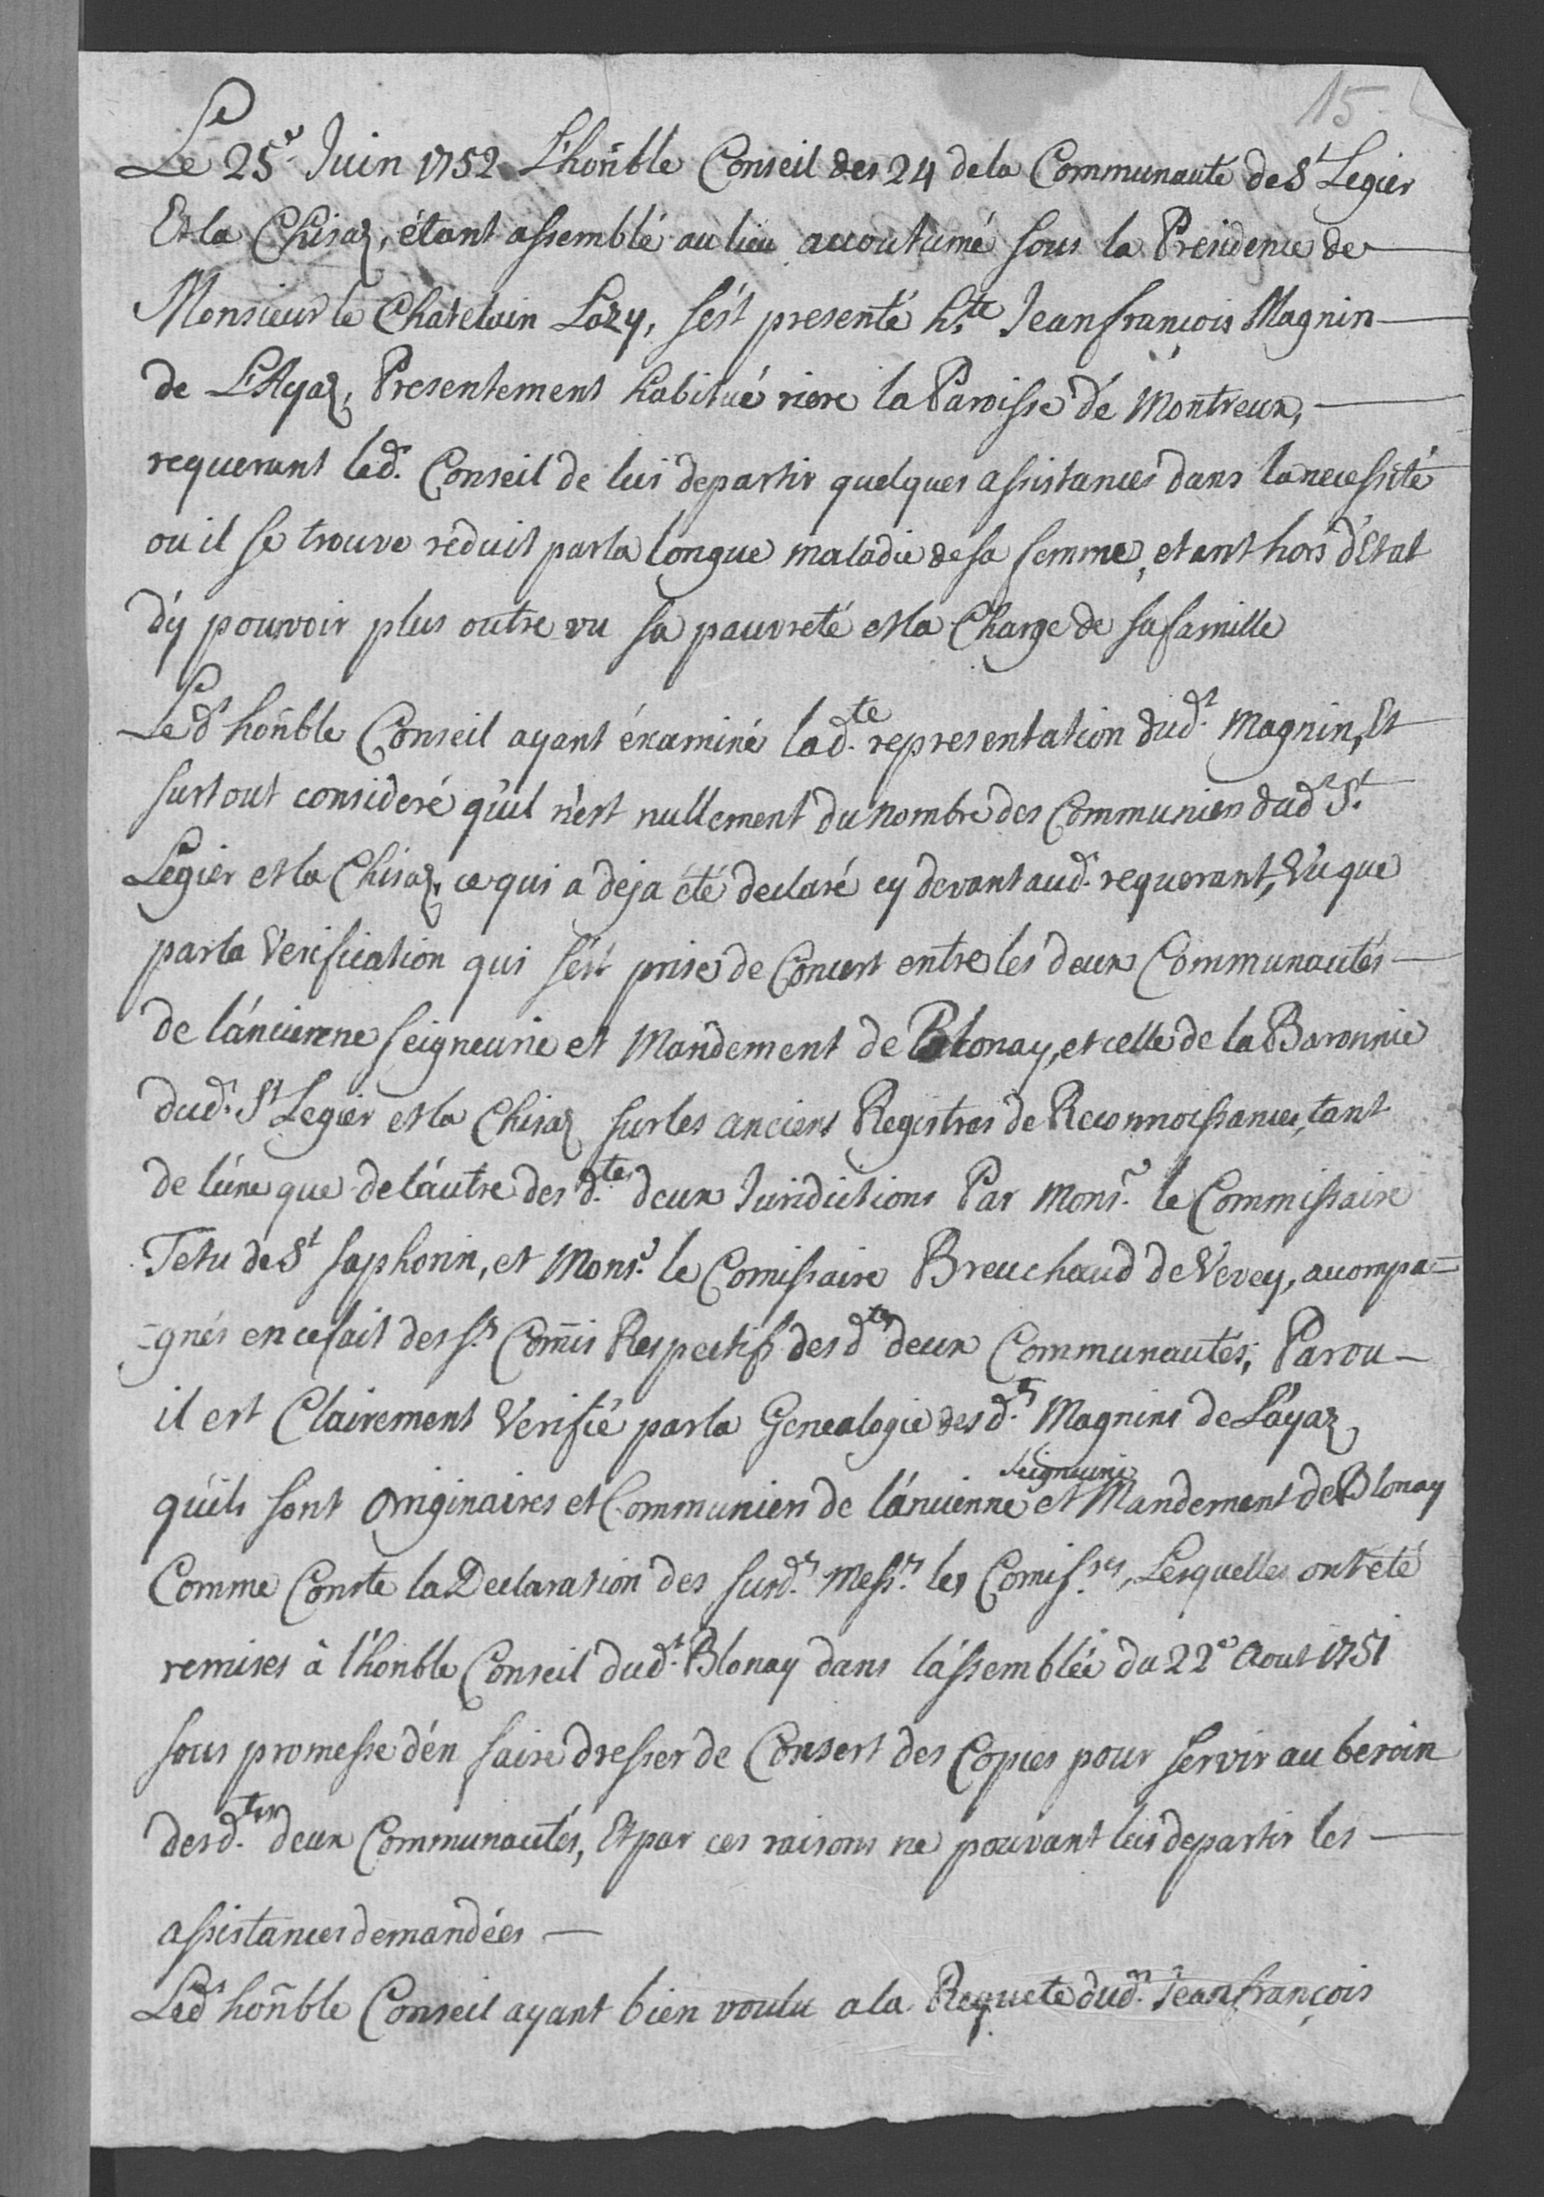 15.
Le 25e. Juin 1752 L'honñble Conseil des 24 dela Communauté de St Legier
Et la Chisaz, étant assemblé au lieu accoutumé sous la Presidence de
Monsieur le Chatelain Lozy, s'ést presenté h.te Jean françois Magnin
de L'Ayaz, Presentement habitué riere la Paroisse dé Montreux,
requerant led. Conseil de lui departir quelques assistances dans la necessité
ou il se trouve réduit par la longue maladie de sa femme, etant hors d'Etat
d'y pouvoir plus outre vu sa pauvreté et la Charge de sa famille
Led.t honñble Conseil ayant éxaminé lad.te representation dud.t Magnin, Et
surtout consideré qu'il n'est nullement du nombre des Communiers dud.t St.
Legier et la Chisaz, ce qui a deja été declaré cy devant aud. requerant, Vû que
par la Verification qui s'ést prise de Concert entre les deux Communautés
de l'áncienne seigneurie et Mandement de Blonay, et celle de la Baronnie
dud.t St Legier et la Chisaz sur les anciens Registres de Reconnoissances, tant
de l'úne que de l'áutre des d.tes deux Juridictions Par Mons.r le Commissaire
Tetu de St Saphorin, et Mons.r le Comissaire Breuchaud de Vevey, accompa=
=gnés en ce fait des s.rs Comis Respectifs des d.tes deux Communautés, Par ou
il est Clairement Verifié par la Genealogie des d.ts Magnins de L'áyaz
qu'ils sont Originaires et Communiers de l'áncienne Seigneurie et Mandement de Blonay
Comme Conste la Declaration des susd.ts Mess.rs les Comiss.res, Lesquelles ont été
remises à l'honble Conseil dud.t Blonay dans l'ássemblée du 22e Aout 1751
sous promesse d'én faire dresser de Consert des Copies pour servir au besoin
des d.tes deux Communautés, Et par ces raisons ne pouvant lui departir les
assistances demandées
Led.t honñble Conseil ayant bien voulu a la Requete dud.t Jean françois